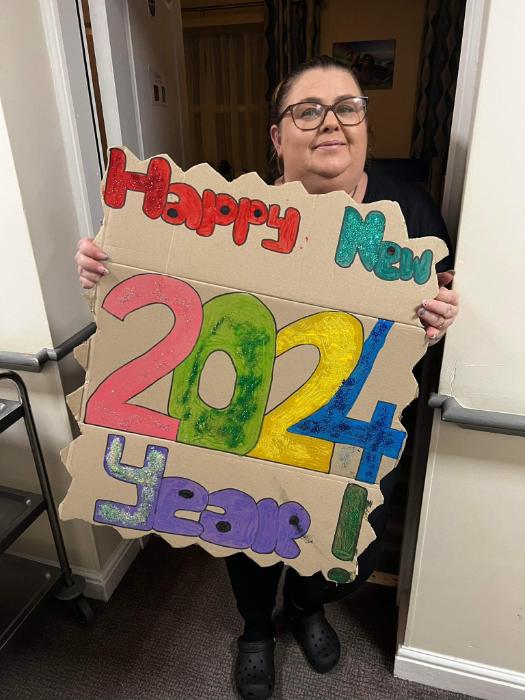 Happy New
2024
Year!